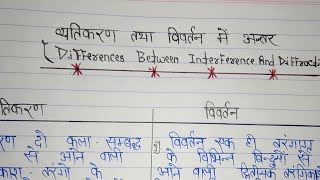 व्यतिकरण तथा विवर्तन में अन्तर
(Differences Between Interference And Diffracti
तिकरण
विवर्तन
रण दो कला-सम्बद्ध
से आने वाली
काश तरंगों के
विवर्तन एक ही तरंगाग्र
के विभिन्न बिन्दुओं से
आने वाली द्वितीयक तरंगिकाओं